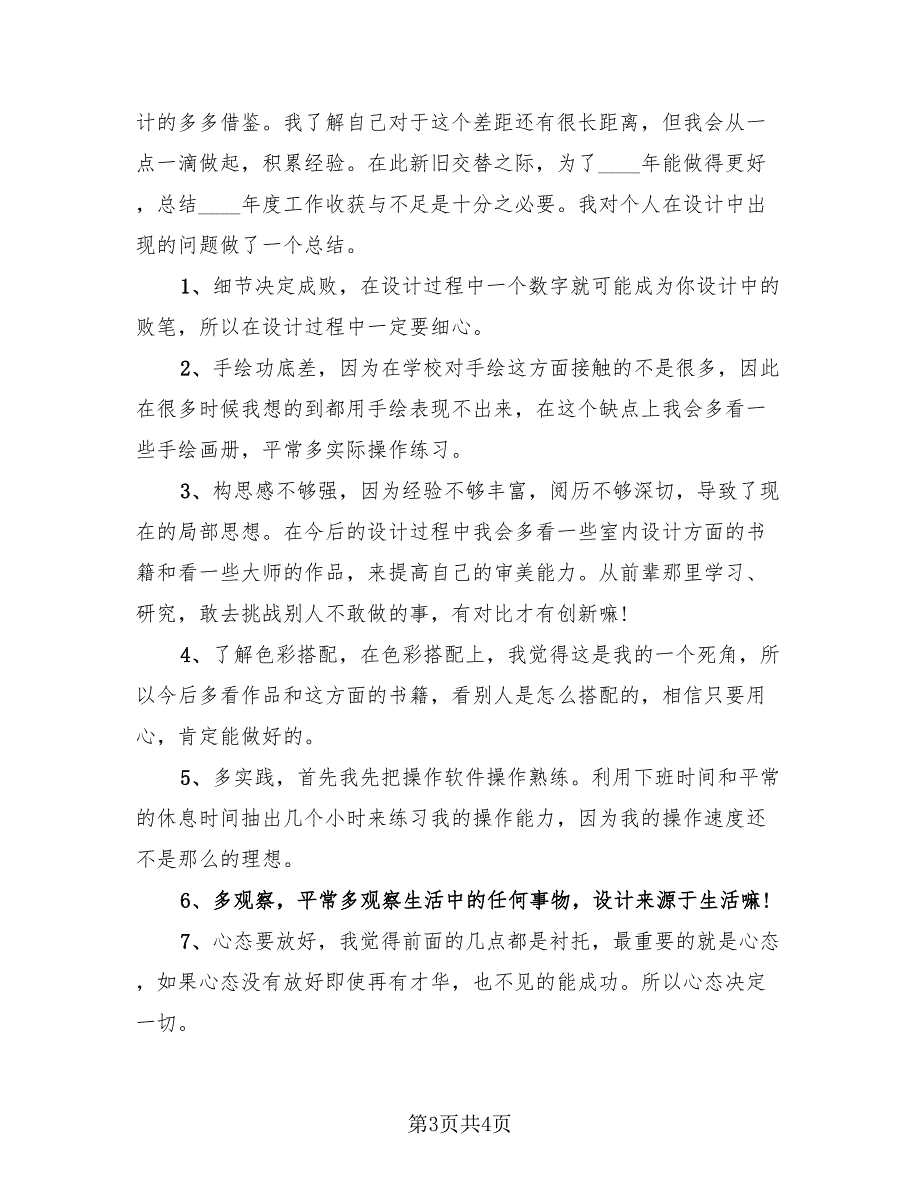 计的多多借鉴。我了解自己对于这个差距还有很长距离，但我会从一
点一滴做起，积累经验。在此新旧交替之际，为了____年能做得更好
，总结____年度工作收获与不足是十分之必要。我对个人在设计中出
现的问题做了一个总结。
1、细节决定成败，在设计过程中一个数字就可能成为你设计中的
败笔，所以在设计过程中一定要细心。
2、手绘功底差，因为在学校对手绘这方面接触的不是很多，因此
在很多时候我想的到都用手绘表现不出来，在这个缺点上我会多看一
些手绘画册，平常多实际操作练习。
3、构思感不够强，因为经验不够丰富，阅历不够深切，导致了现
在的局部思想。在今后的设计过程中我会多看一些室内设计方面的书
籍和看一些大师的作品，来提高自己的审美能力。从前辈那里学习、
研究，敢去挑战别人不敢做的事，有对比才有创新嘛!
4、了解色彩搭配，在色彩搭配上，我觉得这是我的一个死角，所
以今后多看作品和这方面的书籍，看别人是怎么搭配的，相信只要用
心，肯定能做好的。
5、多实践，首先我先把操作软件操作熟练。利用下班时间和平常
的休息时间抽出几个小时来练习我的操作能力，因为我的操作速度还
不是那么的理想。
6、多观察，平常多观察生活中的任何事物，设计来源于生活嘛!
7、心态要放好，我觉得前面的几点都是衬托，最重要的就是心态
，如果心态没有放好即使再有才华，也不见的能成功。所以心态决定
一切。
第3页共4页